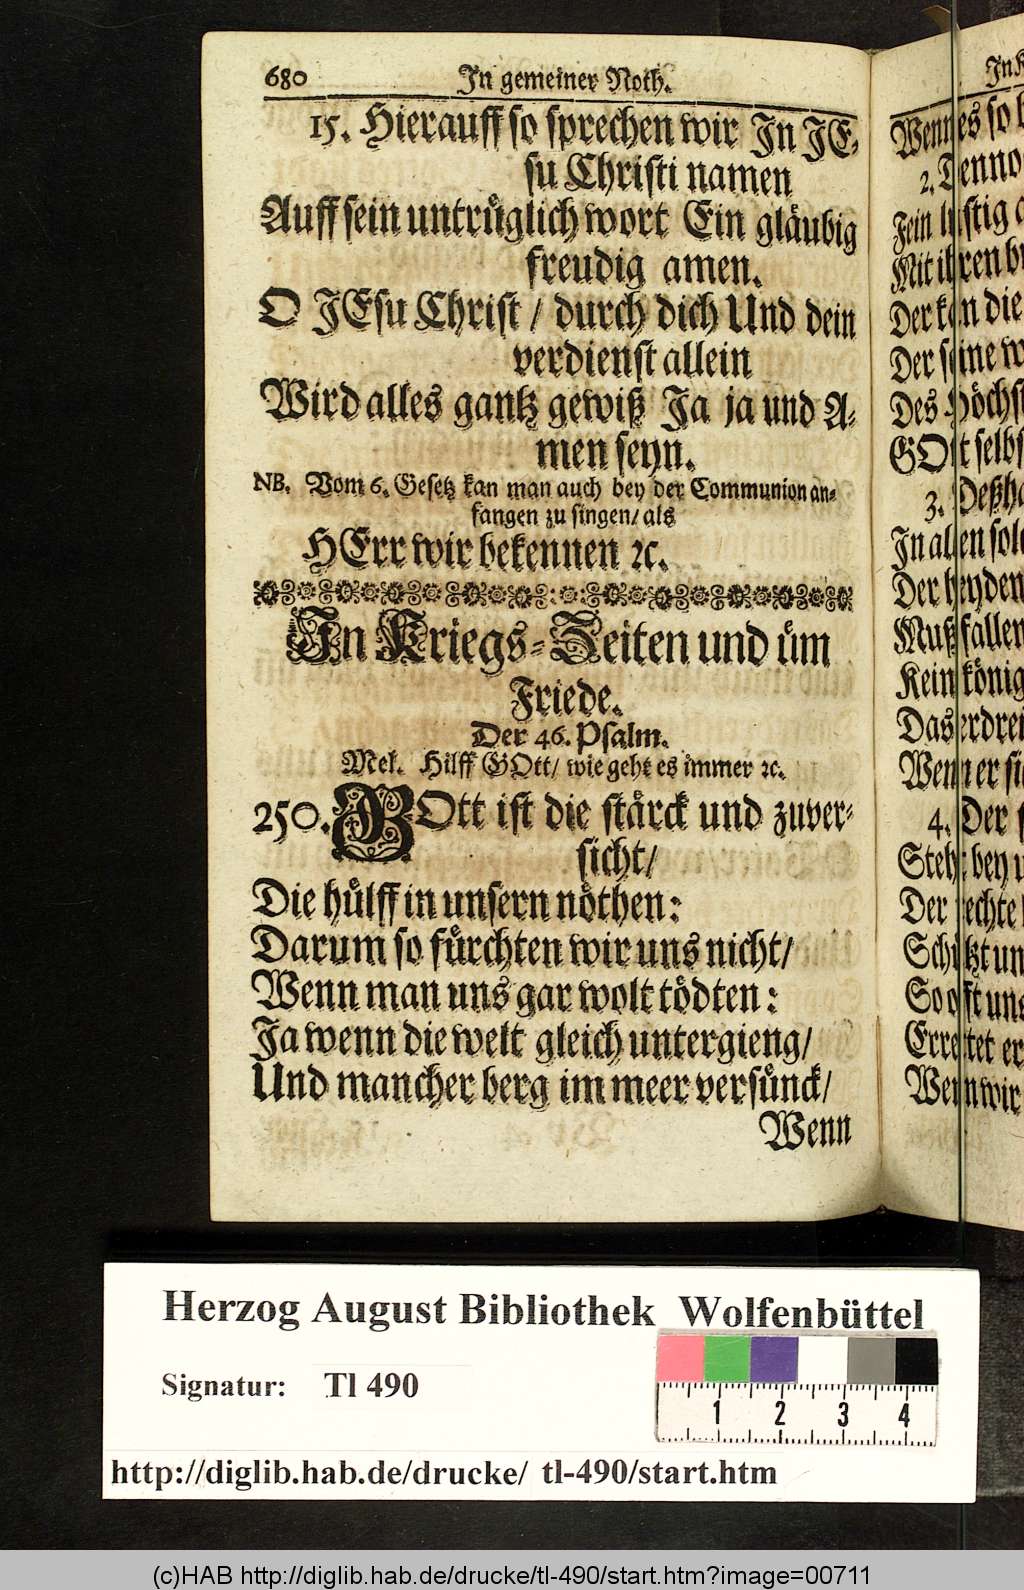 680 In gemeiner Noth.
15. Hierauff so sprechen wir In JE-
su Christi namen
Auff sein untrüglich wort Ein gläubig
freudig amen.
O JEsu Christ / durch dich Und dein
verdienst allein
Wird alles gantz gewiß Ja ja und A-
men seyn.
NB. Vom 6. Gesetz kan man auch bey der Communion an-
fangen zu singen / als
HErr wir bekennen ꝛc.
In Kriegs-Zeiten und üm
Friede.
Der 46. Psalm.
Mel. Hilff GOtt / wie geht es immer ꝛc.
250. GOtt ist die stärck und zuver-
sicht /
Die hülff in unsern nöthen:
Darum so fürchten wir uns nicht /
Wenn man uns gar wolt tödten:
Ja wenn die welt gleich untergieng /
Und mancher berg im meer versünck /
Wenn
Wenn es so
2.
Fein lustig
Mit ihren
Der kan die
Der seine
Des Höchst
GOtt selbs
3. Deßha
In allen
Der heyden
Muß fallen
Kein könig
Das erdrei
Wenn er
4. Der
Steht bey
Der rechte
Schützt
So offt uns
Errettet er
Wenn wir
Herzog August Bibliothek Wolfenbüttel
Signatur: Tl 490
1 2 3 4
http://diglib.hab.de/drucke/ tl-490/start.htm
(c)HAB http://diglib.hab.de/drucke/tl-490/start.htm?image=00711